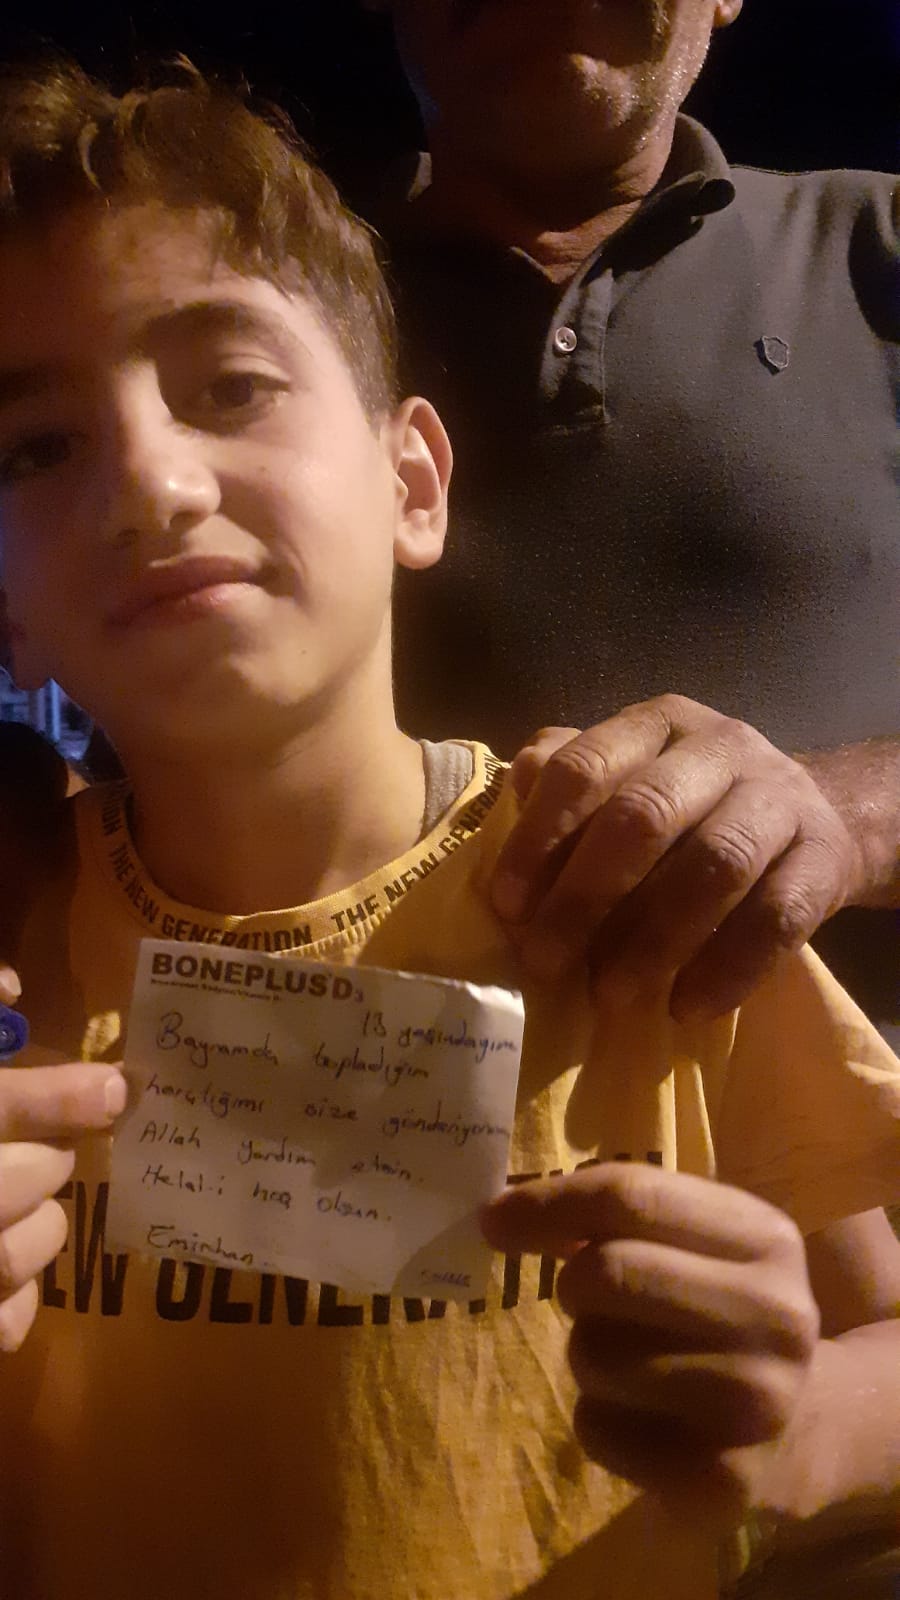 THE NEW GENERATION THE NEW GENERATION
BONEPLUS D3
13 yaşındayım
Bayramda topladığım
harçlığımı size gönderiyorum
Allah yardım etsin.
Helal-i hoş olsun.
Eminhan
EW GENERATION